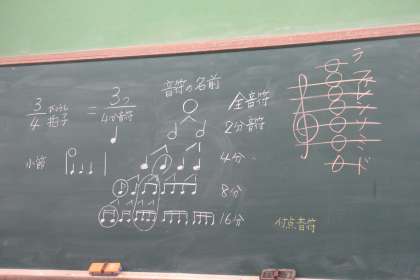 音符の名前
3/4 びょうし 拍子 = 3つ/4分音符
全音符
2分音符
小節
4分
8分
16分
付点音符
ド